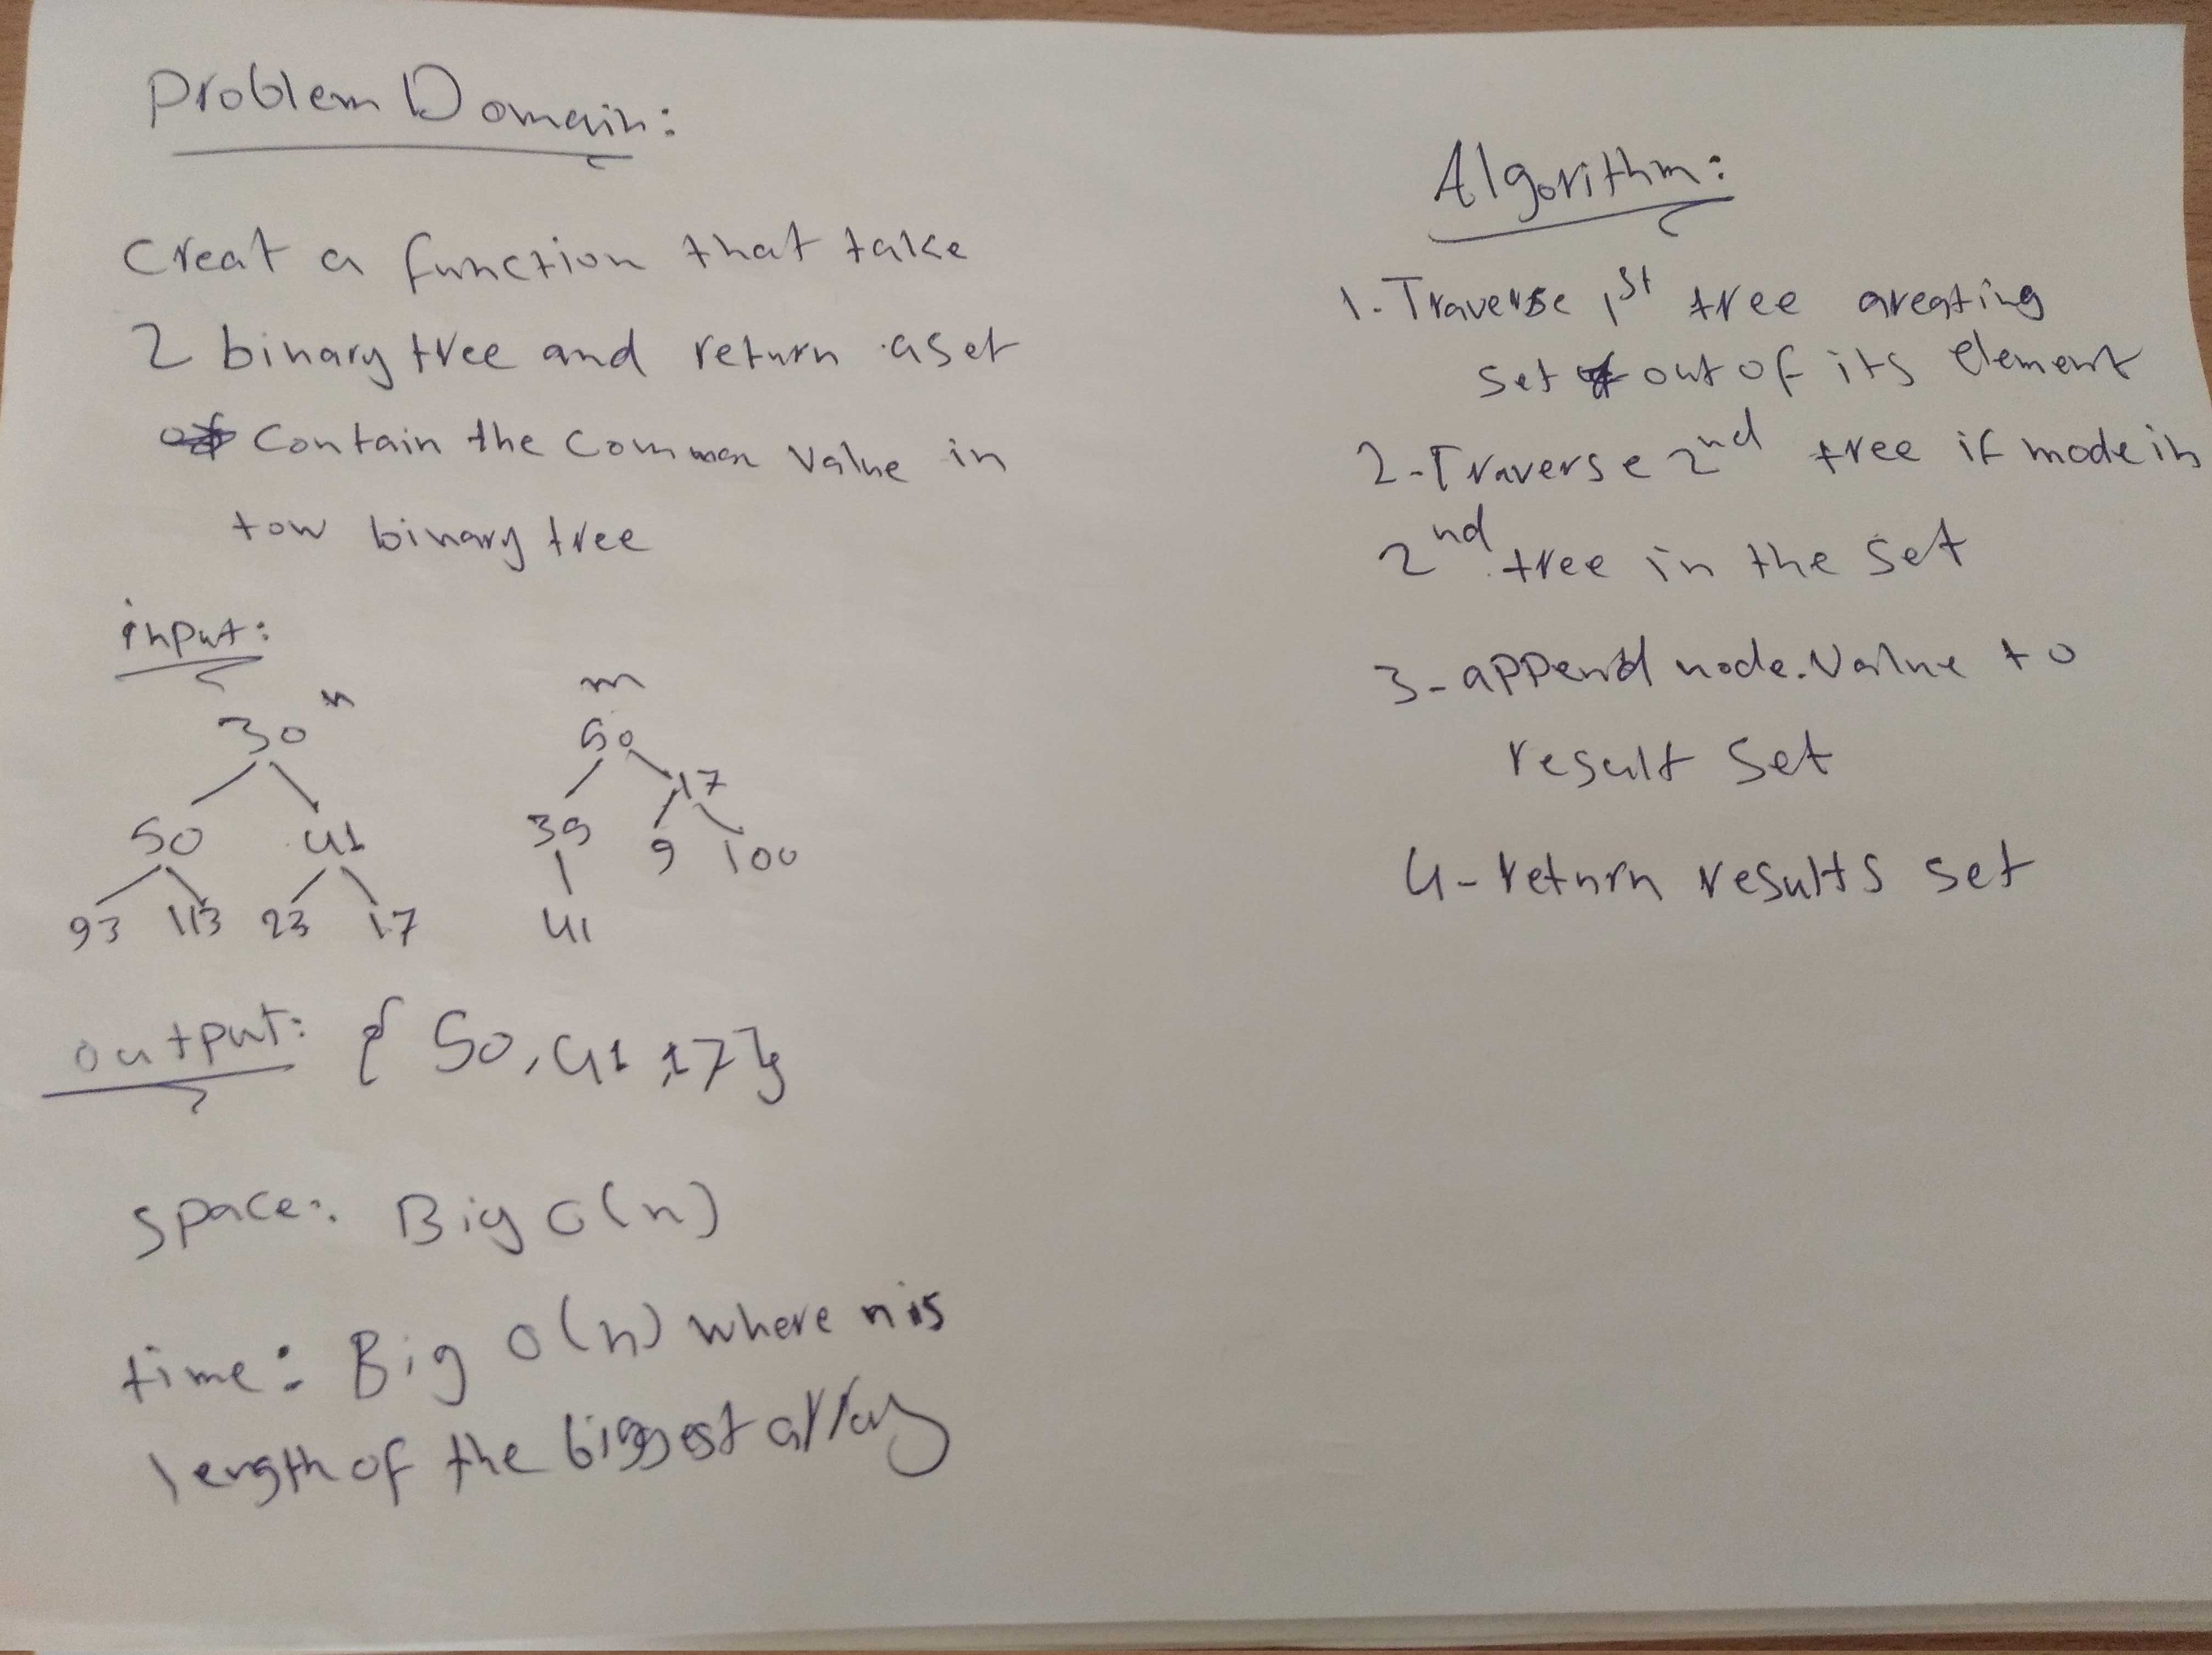 Problem Domain:
Creat a function that take
2 binary tree and return a set
contain the common value in
tow binary tree
input:
n
m
30
50
50 41
39 17
93 113 23 17
41 9 100
output: { 50, 41, 17 }
Space: Big O(n)
time: Big O(n) where n is
length of the biggest array
Algorithm:
1. Traverse 1st tree creating
set out of its element
2- Traverse 2nd tree if node in
2nd tree in the set
3- append node.Value to
result set
4- return results set